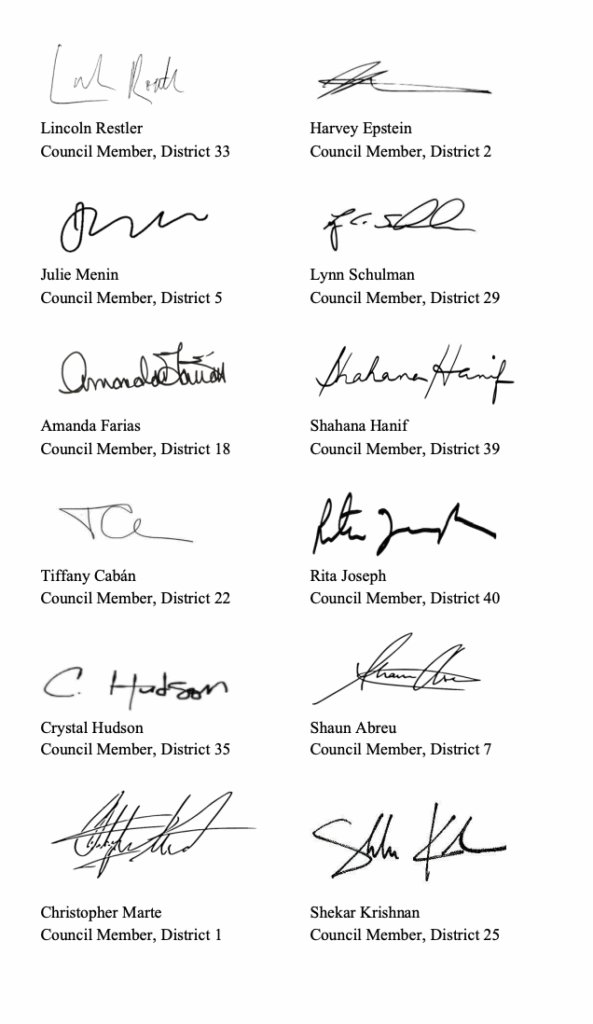 Lincoln Restler
Council Member, District 33
Harvey Epstein
Council Member, District 2
Julie Menin
Council Member, District 5
Lynn Schulman
Council Member, District 29
Amanda Farias
Council Member, District 18
Shahana Hanif
Shahana Hanif
Council Member, District 39
Tiffany Cabán
Council Member, District 22
Rita Joseph
Council Member, District 40
C. Hudson
Crystal Hudson
Council Member, District 35
Shaun Abreu
Council Member, District 7
Christopher Marte
Council Member, District 1
Shekar Krishnan
Council Member, District 25